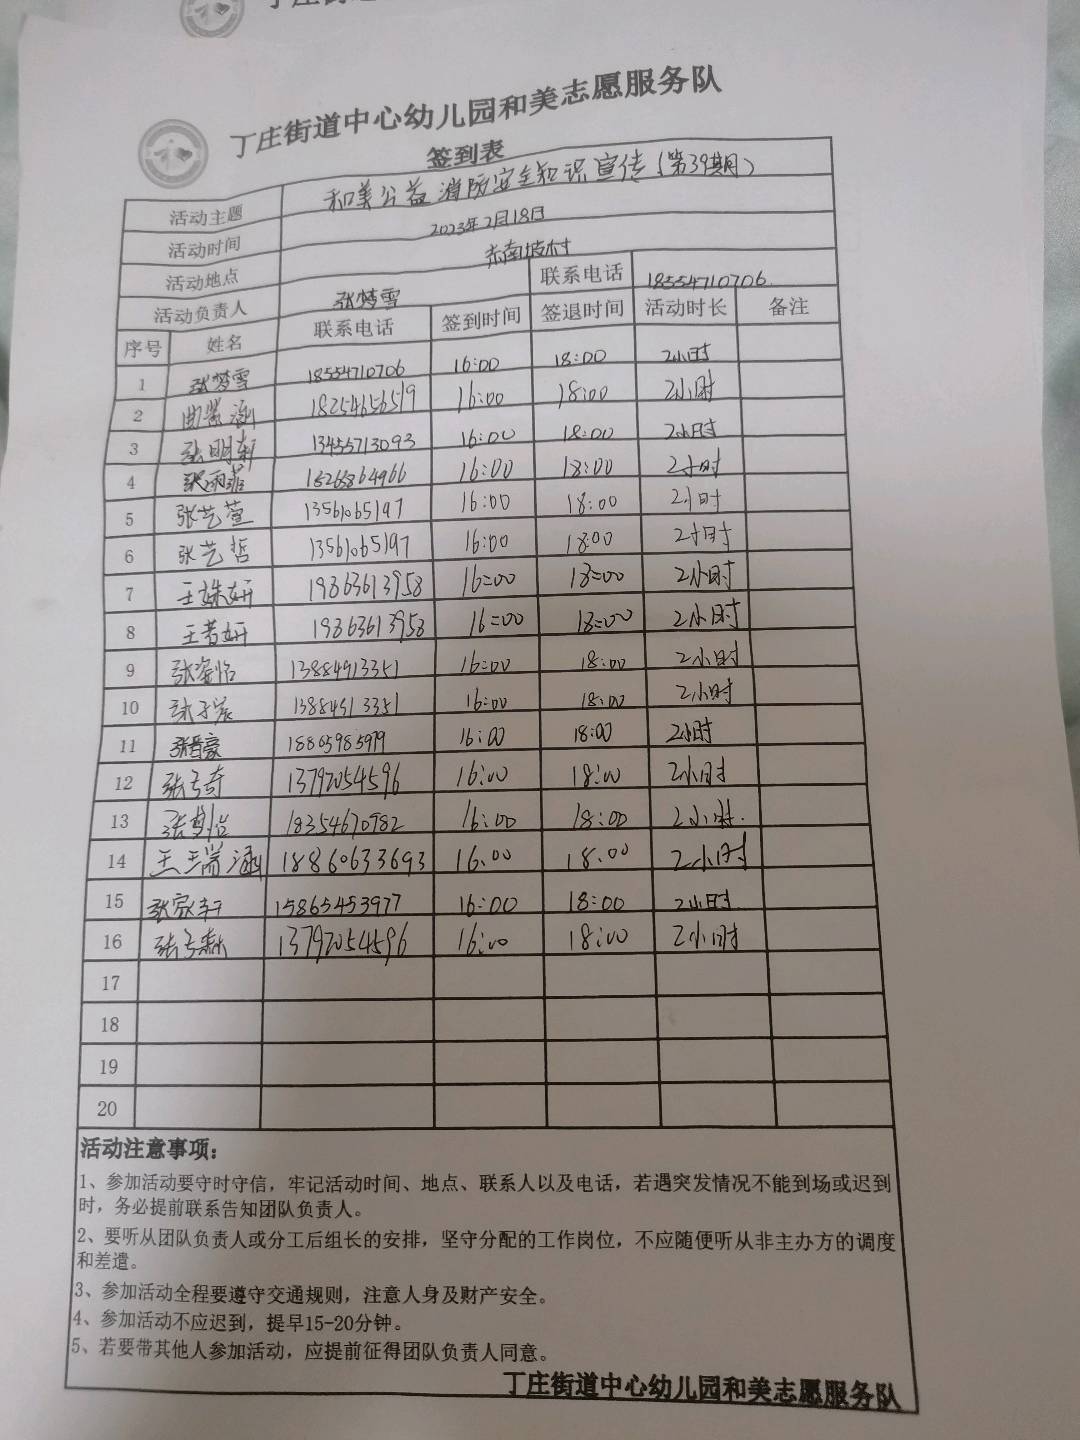 丁庄街道中心幼儿园和美志愿服务队
签到表
活动主题 和美公益消防安全知识宣传(第39期)
活动时间 2023年2月18日
活动地点 东南坡村
活动负责人 张梦雪 联系电话 18554710706
序号 姓名 联系电话 签到时间 签退时间 活动时长 备注
1 张梦雪 18554710706 16:00 18:00 2小时
2 18254656519 16:00 18:00 2小时
3 张明轩 13455713093 16:00 18:00 2小时
4 张雨菲 15265864966 16:00 18:00 2小时
5 张艺萱 13561065197 16:00 18:00 2小时
6 张艺哲 13561065197 16:00 18:00 2小时
7 王姝妍 19863613958 16:00 18:00 2小时
8 王若妍 19863613958 16:00 18:00 2小时
9 13884913351 16:00 18:00 2小时
10 张子宸 13884913351 16:00 18:00 2小时
11 张晋豪 18865985979 16:00 18:00 2小时
12 张云奇 13792054596 16:00 18:00 2小时
13 18354670982 16:00 18:00 2小时.
14 18860633693 16:00 18:00 2小时
15 张家轩 15865453977 16:00 18:00 2小时
16 13792054596 16:00 18:00 2小时
17
18
19
20
活动注意事项:
1、参加活动要守时守信,牢记活动时间、地点、联系人以及电话,若遇突发情况不能到场或迟到
时,务必提前联系告知团队负责人。
2、要听从团队负责人或分工后组长的安排,坚守分配的工作岗位,不应随便听从非主办方的调度
和差遣。
3、参加活动全程要遵守交通规则,注意人身及财产安全。
4、参加活动不应迟到,提早15-20分钟。
5、若要带其他人参加活动,应提前征得团队负责人同意。
丁庄街道中心幼儿园和美志愿服务队